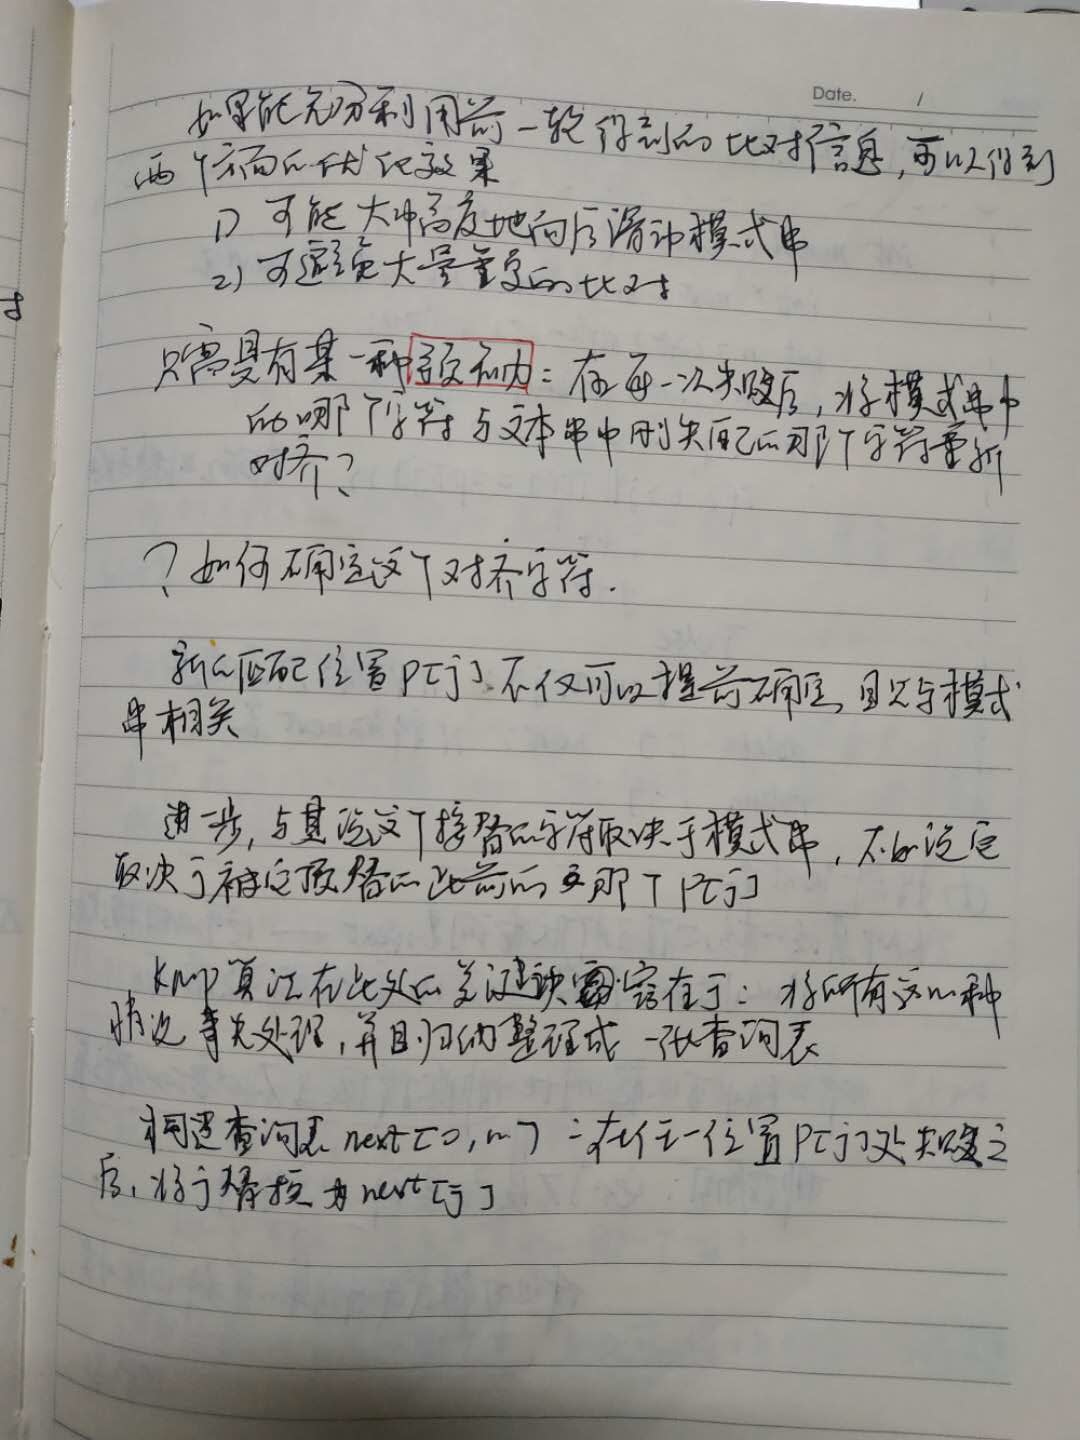 Date. /
如果能充分利用前一轮得到的比对信息,可以得到
两个方面的优化效果
1) 可能大幅高度地向后滑动模式串
2) 可避免大量重复的比对
只需具有某一种预知力:在每一次失败后,将模式串中
的哪个字符与文本串中刚失配的那个字符重新
对齐?
?如何确定这个对齐字符.
新的匹配位置P[j]不仅可以提前确定,且只与模式
串相关
进一步,与其说这个接替的字符取决于模式串,不如说它
取决于被它顶替的此前的那个P[j]
KMP算法在此处的关键诀窍在于:将所有这m种
情况事先处理,并且归纳整理成一张查询表
构造查询表next[0,m):在任一位置P[j]处失败之
后,将j替换为next[j]